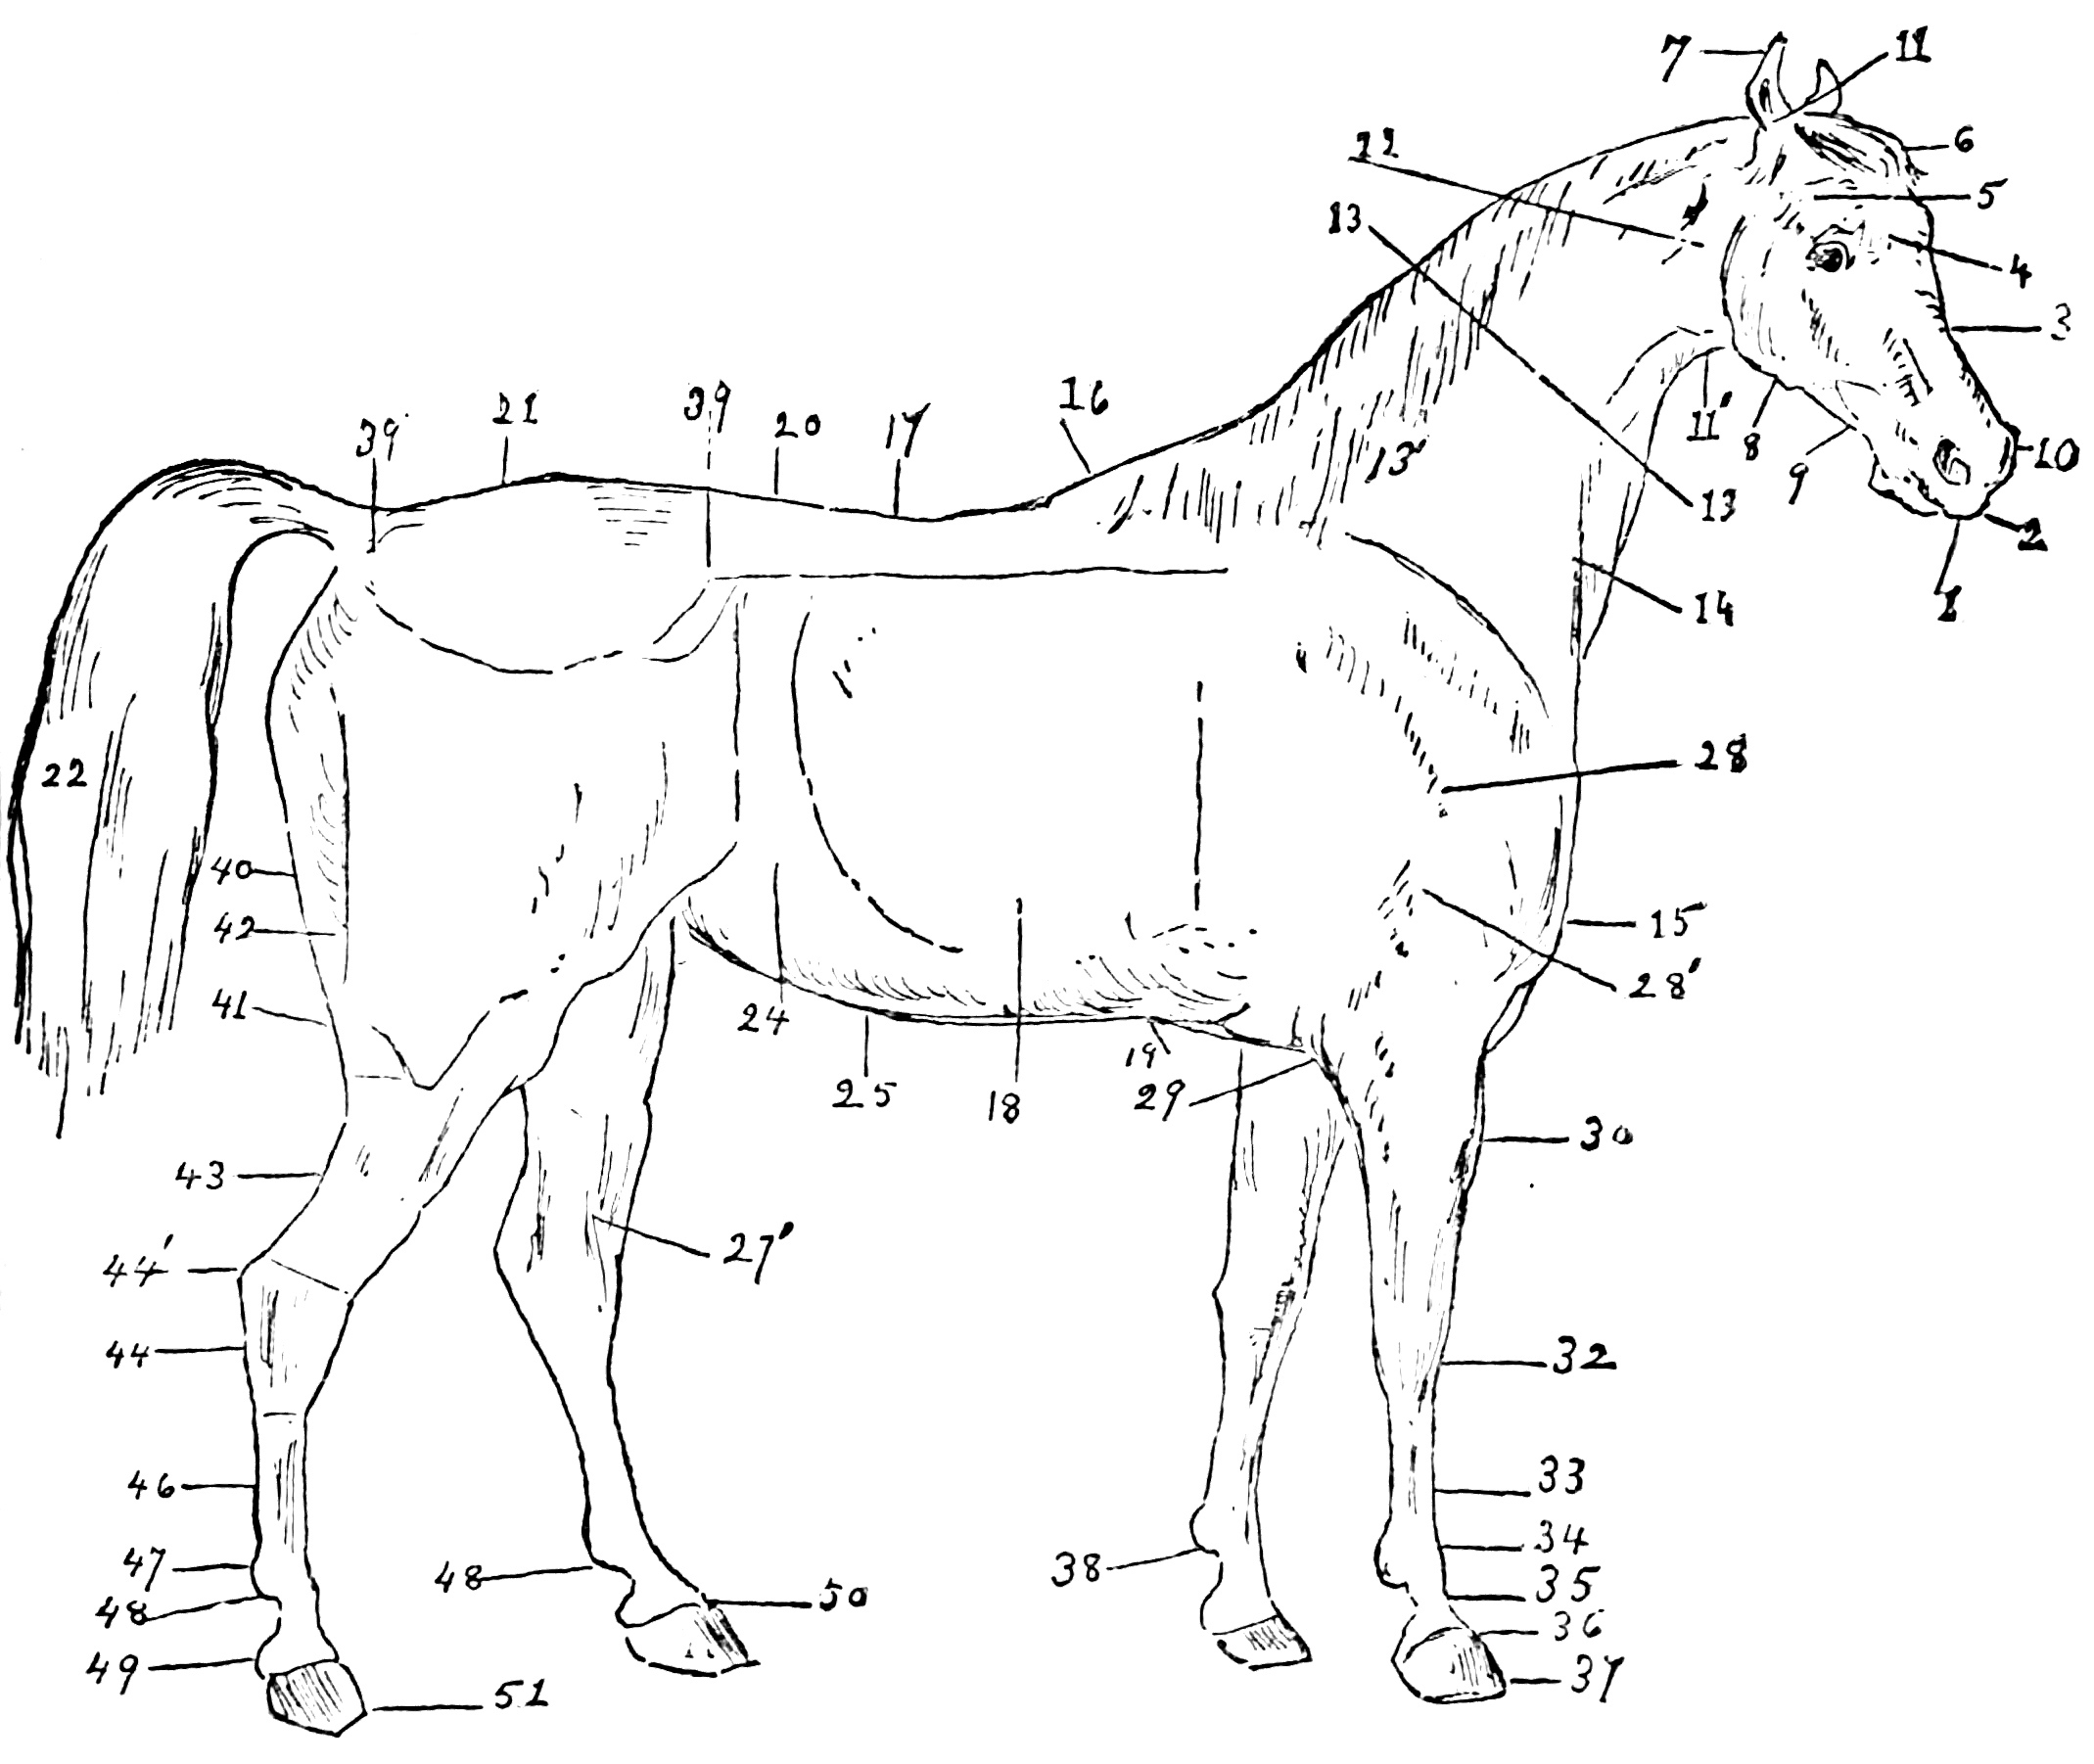 7
11
6
12
5
13
4
3
16
39
11'
8
21
39'
20
17
13'
9
10
13
2
1
14
28
22
40
15
42
28'
41
24
19
25
18
29
30
43
27'
44'
44
32
46
33
34
47
48
38
35
50
48
36
49
37
51